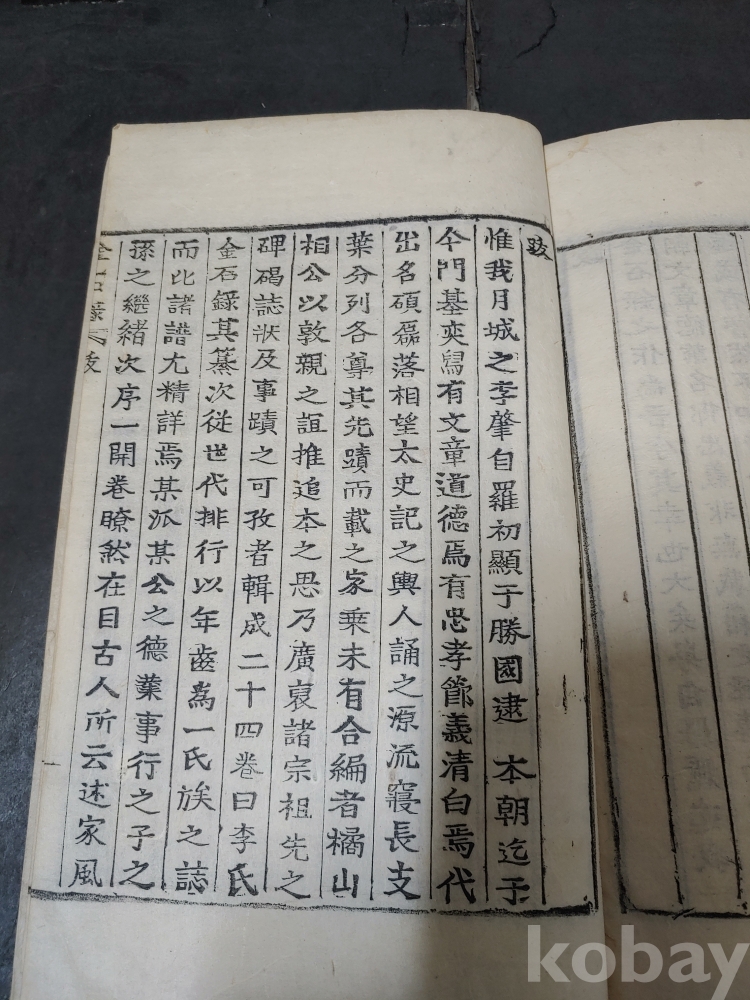 跋
惟我月城之李肇自羅初顯于勝國逮 本朝迄于
今門基奕舄有文章道德焉有忠孝節義清白焉代
出名碩磊落相望太史記之輿人誦之源流寖長支
葉分列各尊其先蹟而載之家乘未有合編者橘山
相公以敦親之誼推追本之思乃廣裒諸宗祖先之
碑碣誌狀及事蹟之可攷者輯成二十四卷曰李氏
金石錄其纂次從世代排行以年齒為一氏族之誌
而比諸譜尤精詳焉某派某公之德業事行之子之
孫之繼緒次序一開卷瞭然在目古人所云述家風
金石錄 跋
一
kobay